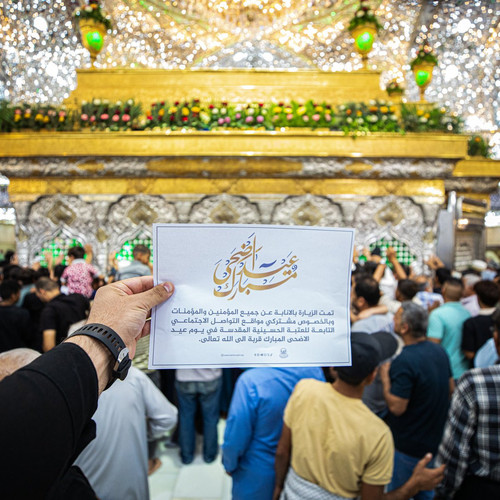 عيد أضحى مبارك
تمت الزيارة بالانابة عن جميع المؤمنين والمؤمنات
وبالخصوص مشتركي مواقع التواصل الاجتماعي
التابعة للعتبة الحسينية المقدسة في يوم عيد
الاضحى المبارك قربة الى الله تعالى.